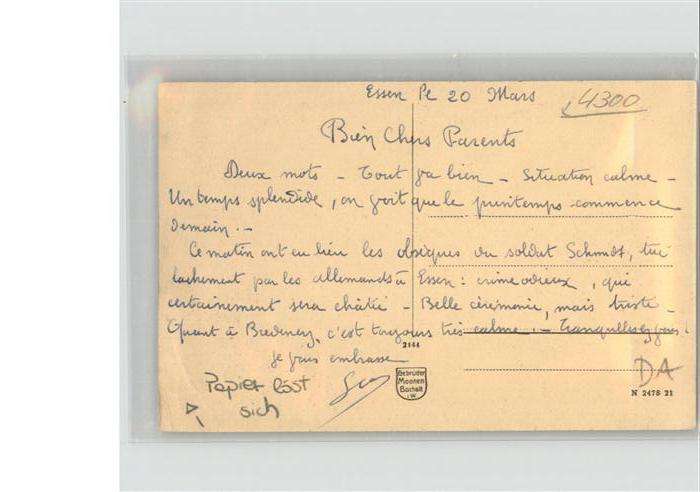 Essen le 20 Mars
4300
Bien Chers Parents
Deux mots - Tout va bien - Situation calme -
Un temps splendide, on voit que le printemps commence
demain. -
Ce matin ont eu lieu les obsèques du soldat Schmdt, tué
lachement par les allemands à Essen : crime odieux, qui
certainement sera châtié - Belle cérémonie, mais triste -
Quant à Bredeney, c'est toujours très calme. - Tranquillesez vous.
je vous embrasse
2144
Papier löst
sich
Gebrüder
Moenen
Bocholt
i.W.
DA
N 2478 21